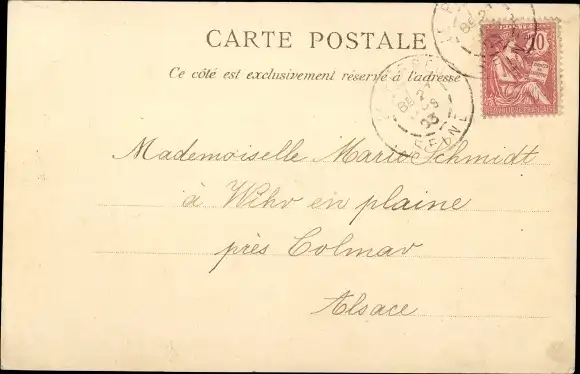 CARTE POSTALE
Ce côté est exclusivement réservé à l'adresse
10
Mademoiselle Marie Schmidt
à Wihr en plaine
près Colmar
Alsace